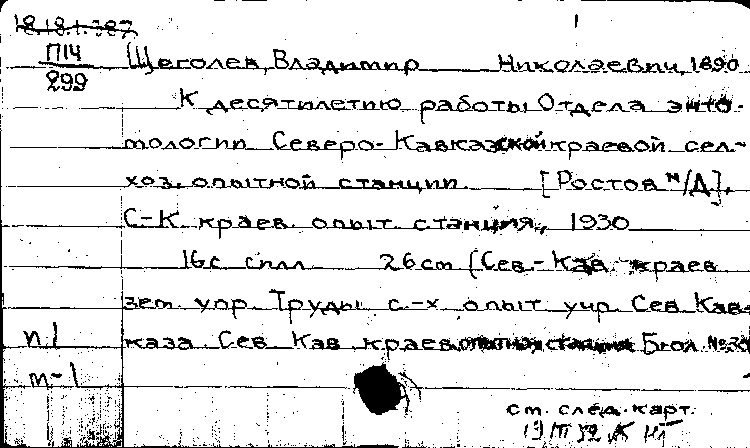 18.18.1.387
П14
299
Щеголев, Владимир Николаевич, 1890
К десятилетию работы Отдела энто-
мологии Северо-Кавказской краевой сел-
хоз. опытной станции. [Ростов н/Д],
С-К. краев. опыт. станция, 1930
16 с. илл. 26 cm (Сев.-Кав. краев
зем. упр. Труды с.-х опыт учр. Сев Кав-
каза. Сев Кав краев. опытная станция Бюл.
п1
т-1
см. след. карт.